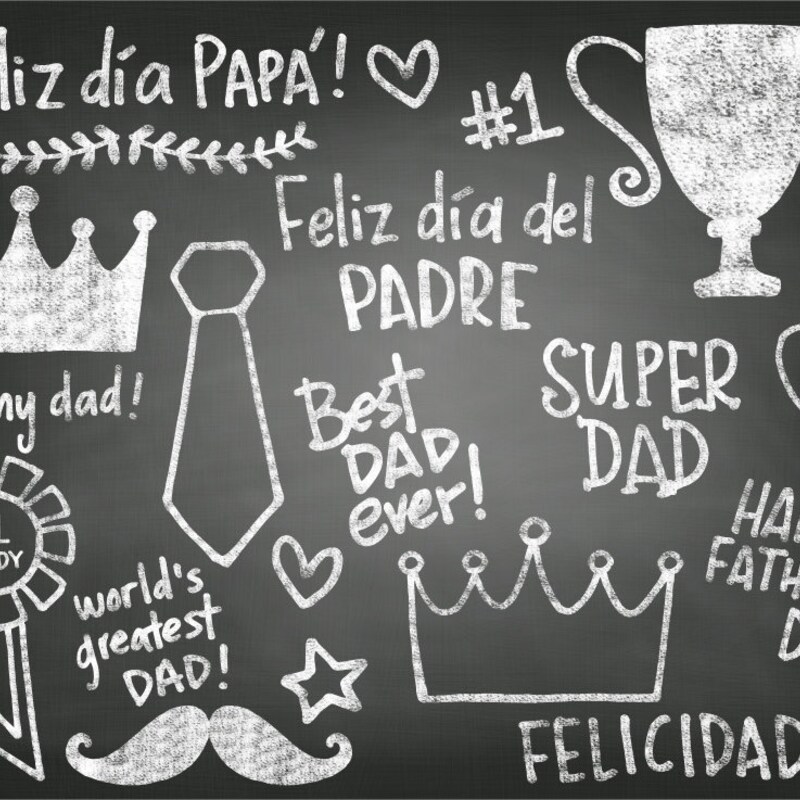 liz día PAPÁ!
#1
Feliz día del
PADRE
my dad!
Best
DAD
ever!
SUPER
DAD
world's
greatest
DAD!
FELICIDAD